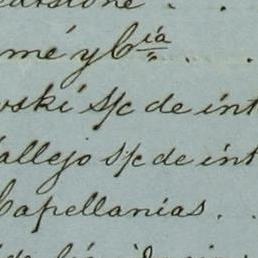 mé y Cía
wski s/c de int
allejo s/c de int
Capellanías . .